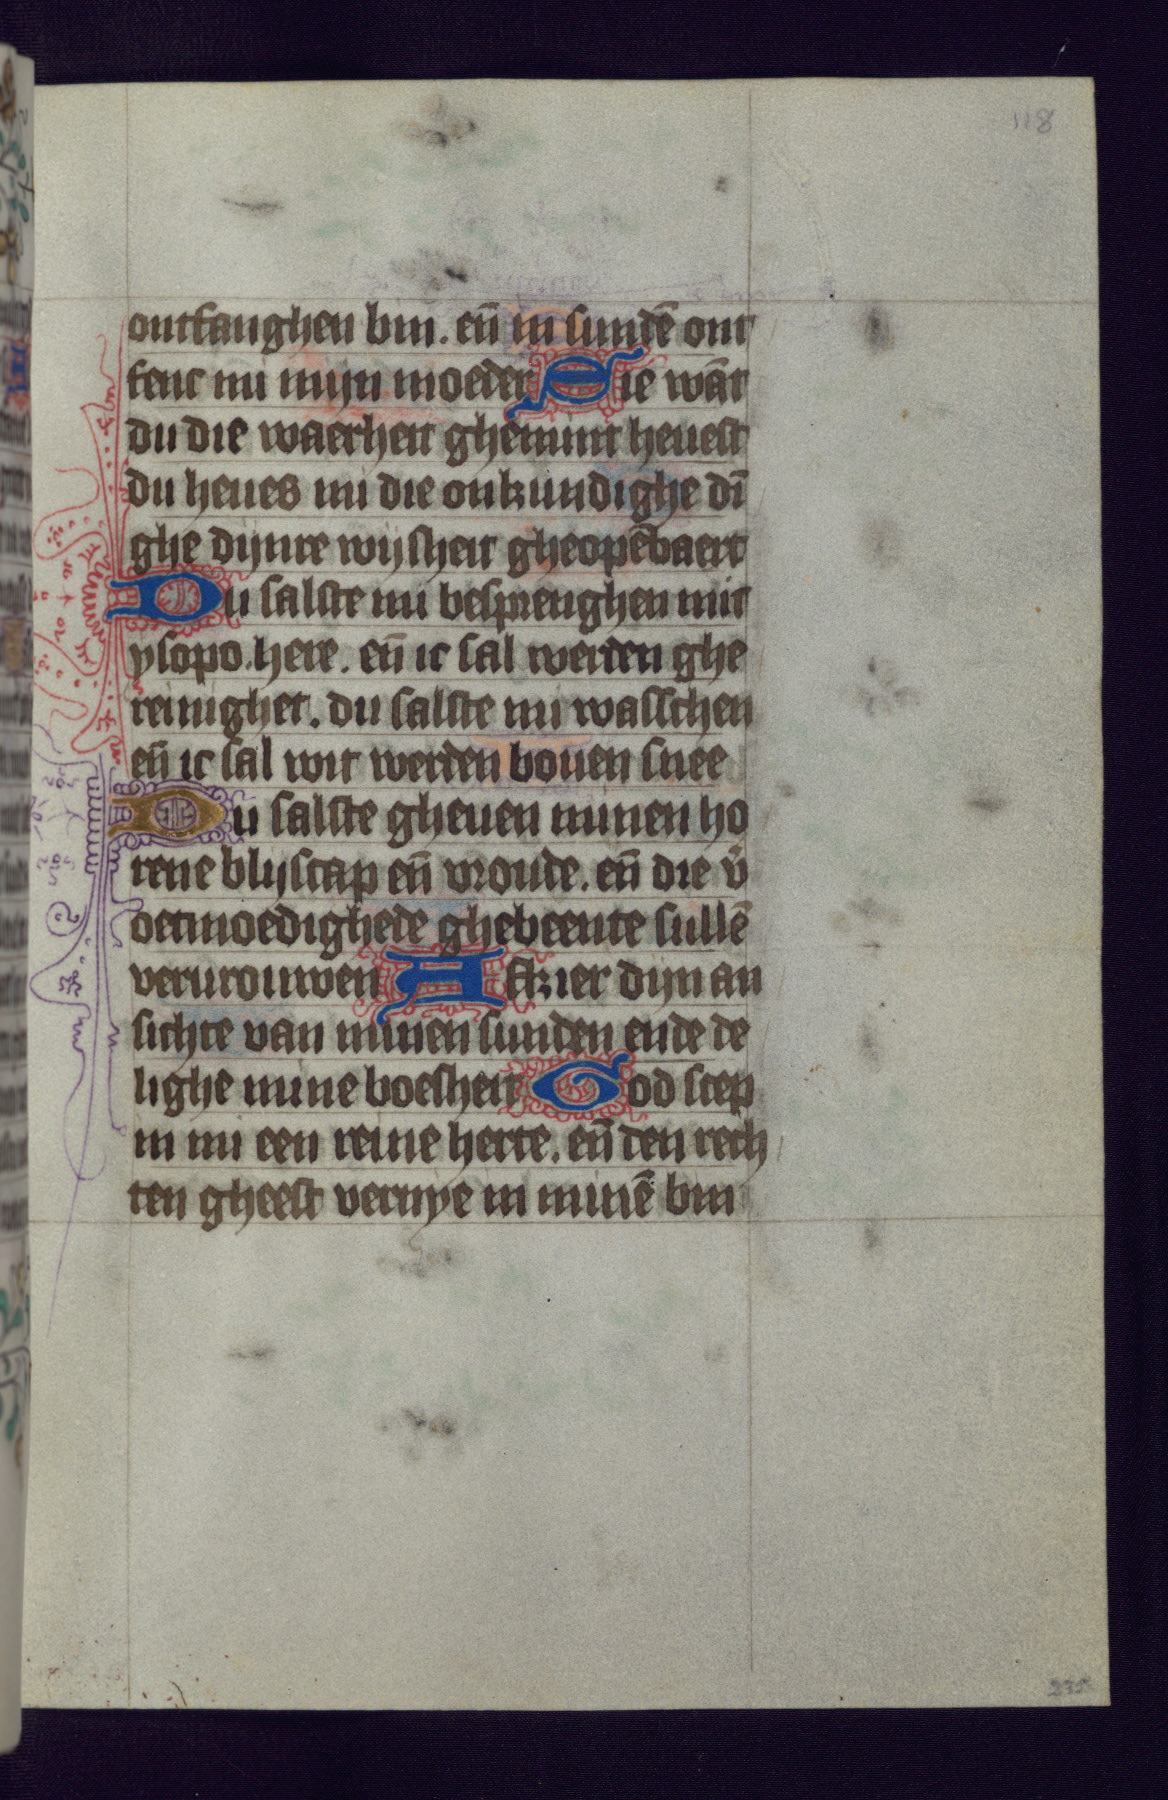 118
ontfanghen bin. eñ in sundē ont
fenc mi mijn moeder Sie wāt
du die waerheit ghemint heuest
du heues mi die onkundighe dī
ghe dijnre wijsheit gheopēbaert
Du salste mi besprenghen mit
ysopo. here. eñ ic sal werden ghe
reinighet. du salste mi wasschen
eñ ic sal wit werden bouen snee
Du salste gheuen minen ho
rene blijscap eñ vroude. eñ die v̄
oetmoedighede ghebeente sullē
verurouwen Afkier dijn an
sichte van minen sunden ende de
lighe mine boesheit God scep
in mi een reine herte. eñ den rech
ten gheest vernye in minē bin
235